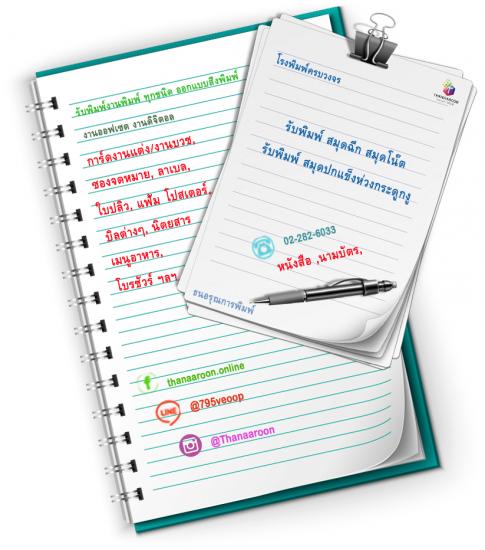 รับพิมพ์งานพิมพ์ ทุกชนิด ออกแบบสิ่งพิมพ์
งานออฟเซต งานดิจิตอล
การ์ดงานแต่ง/งานบวช,
ซองจดหมาย, ลาเบล,
ใบปลิว, แฟ้ม โปสเตอร์,
บิลต่างๆ, นิตยสาร
เมนูอาหาร,
โบรชัวร์ ฯลฯ
thanaaroon.online
LINE
@795veoop
@Thanaaroon
โรงพิมพ์ครบวงจร
THANAAROON
รับพิมพ์ สมุดฉีก สมุดโน๊ต
รับพิมพ์ สมุดปกแข็งห่วงกระดูกงู
02-282-6033
หนังสือ ,นามบัตร,
ธนอรุณการพิมพ์